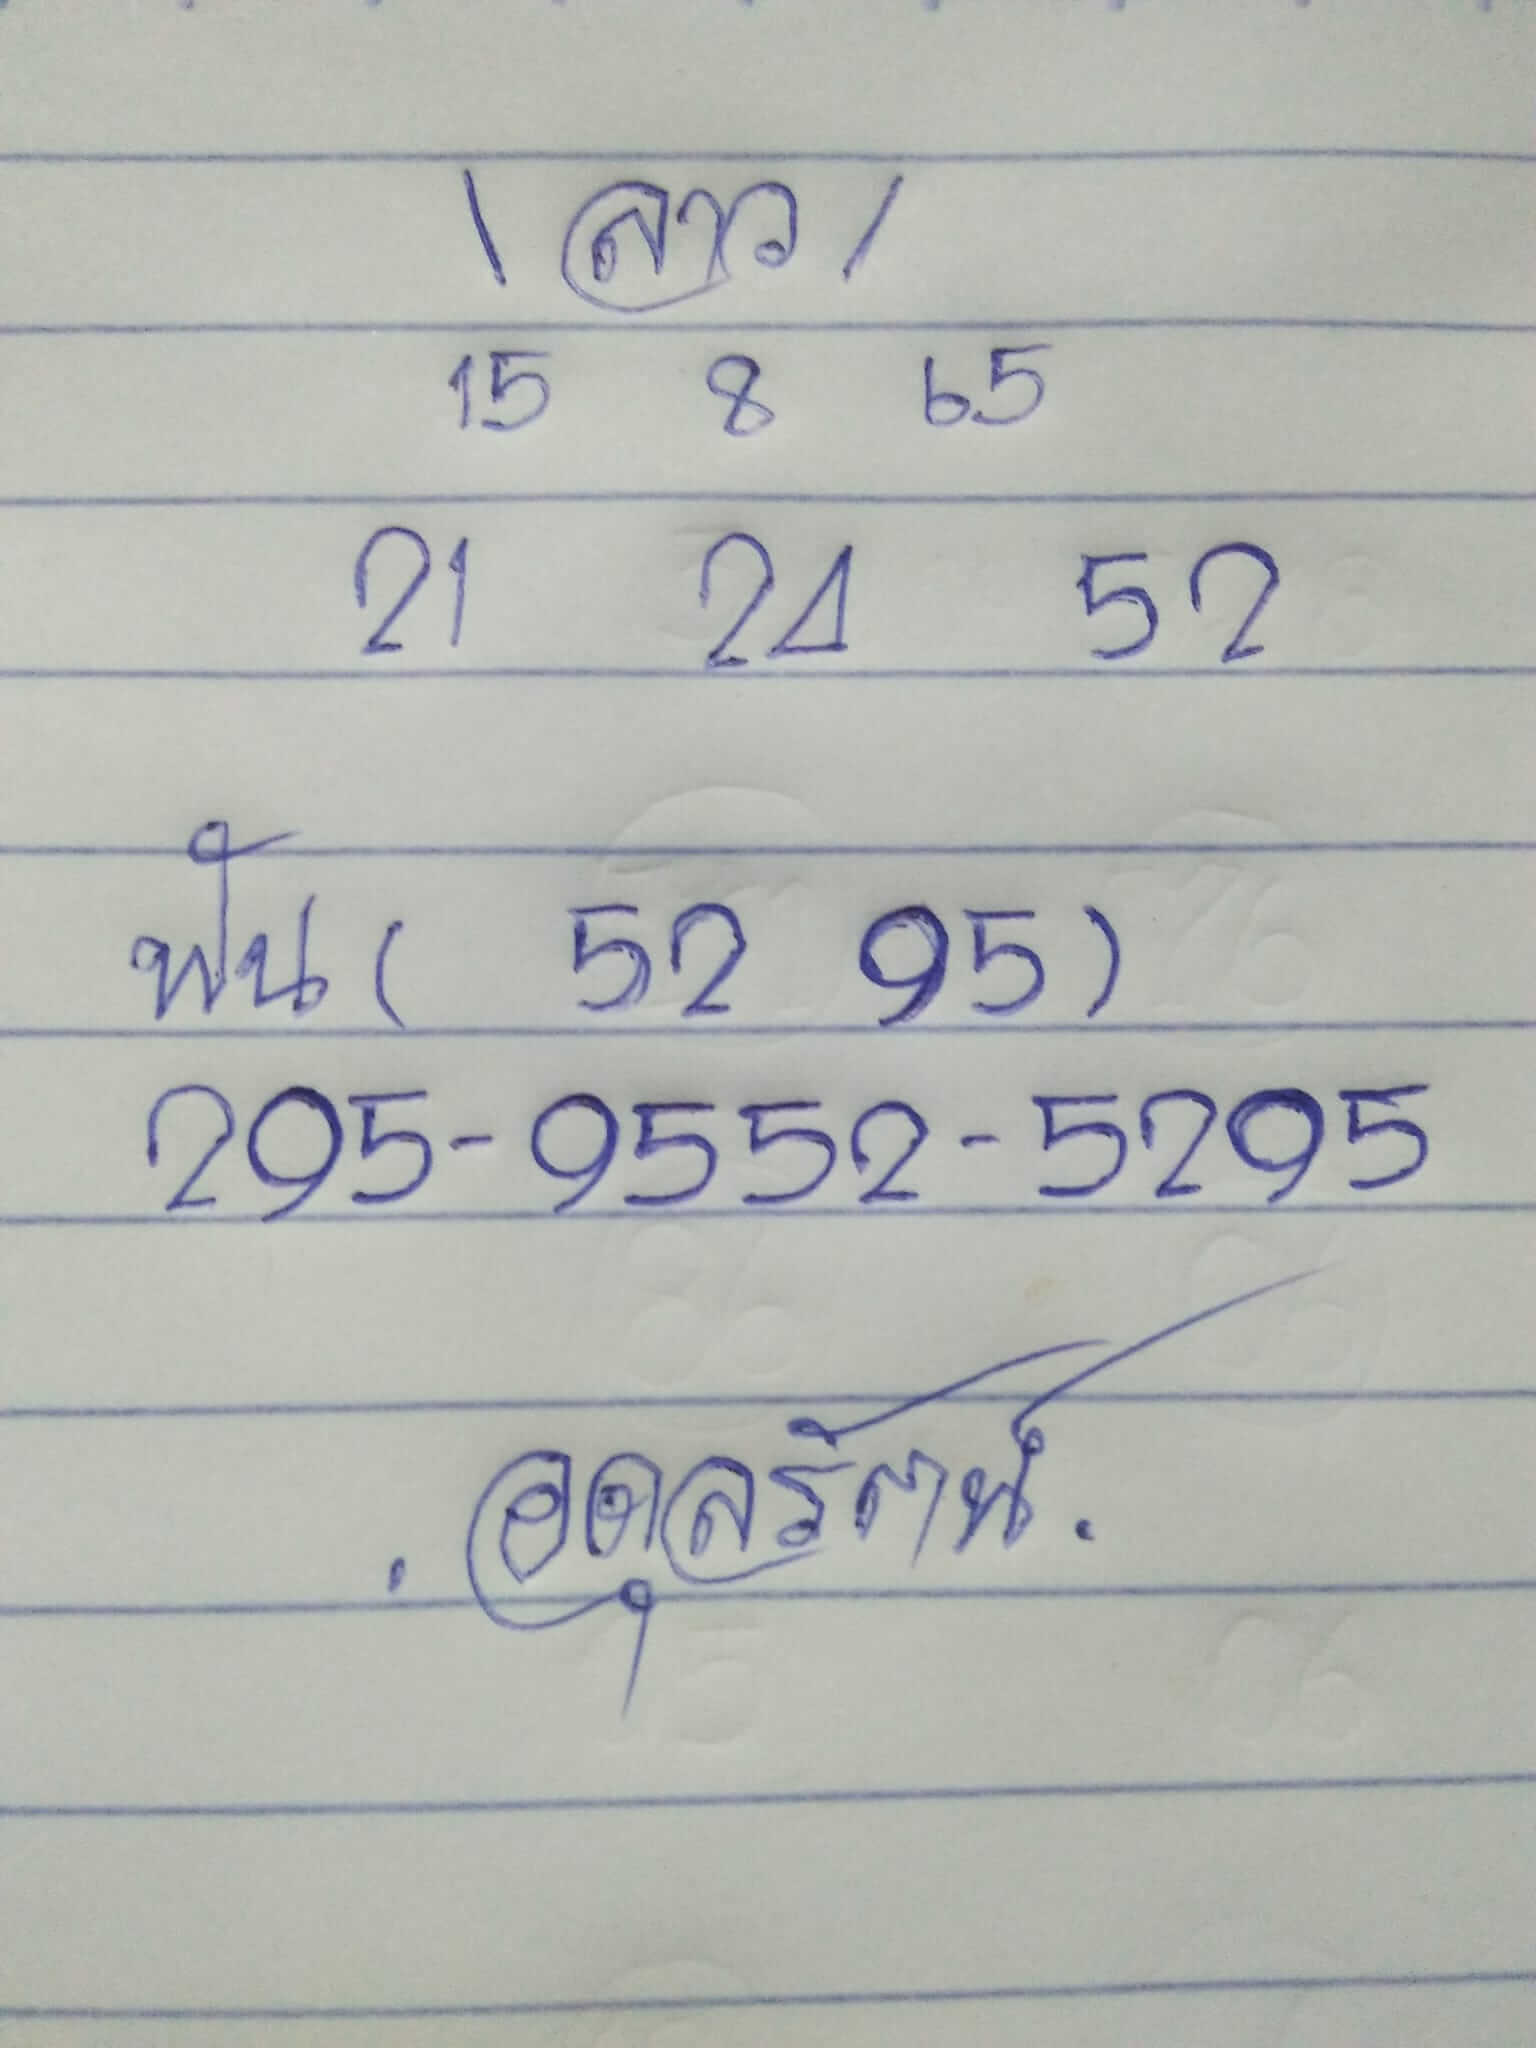 \ ลาว /
15 8 65
21 24 52
ฟัน ( 52 95 )
295-9552-5295
. อดุลรัตน์ .